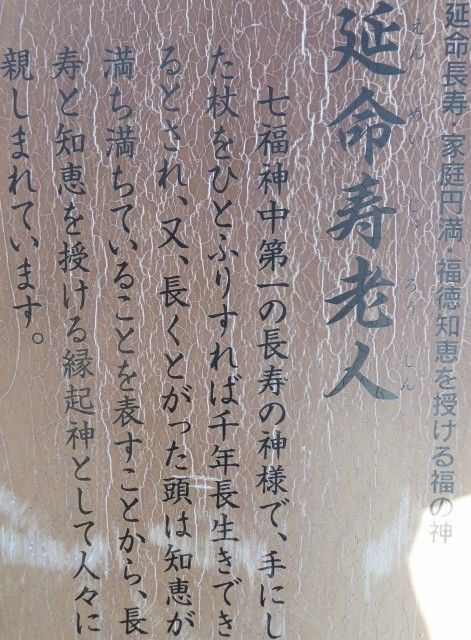 延命長寿・家庭円満・福徳知恵を授ける福の神
延命寿老人
えんめいじゅろうじん
七福神中第一の長寿の神様で、手にし
た杖をひとふりすれば千年長生きでき
るとされ、又、長くとがった頭は知恵が
満ち満ちていることを表すことから、長
寿と知恵を授ける縁起神として人々に
親しまれています。